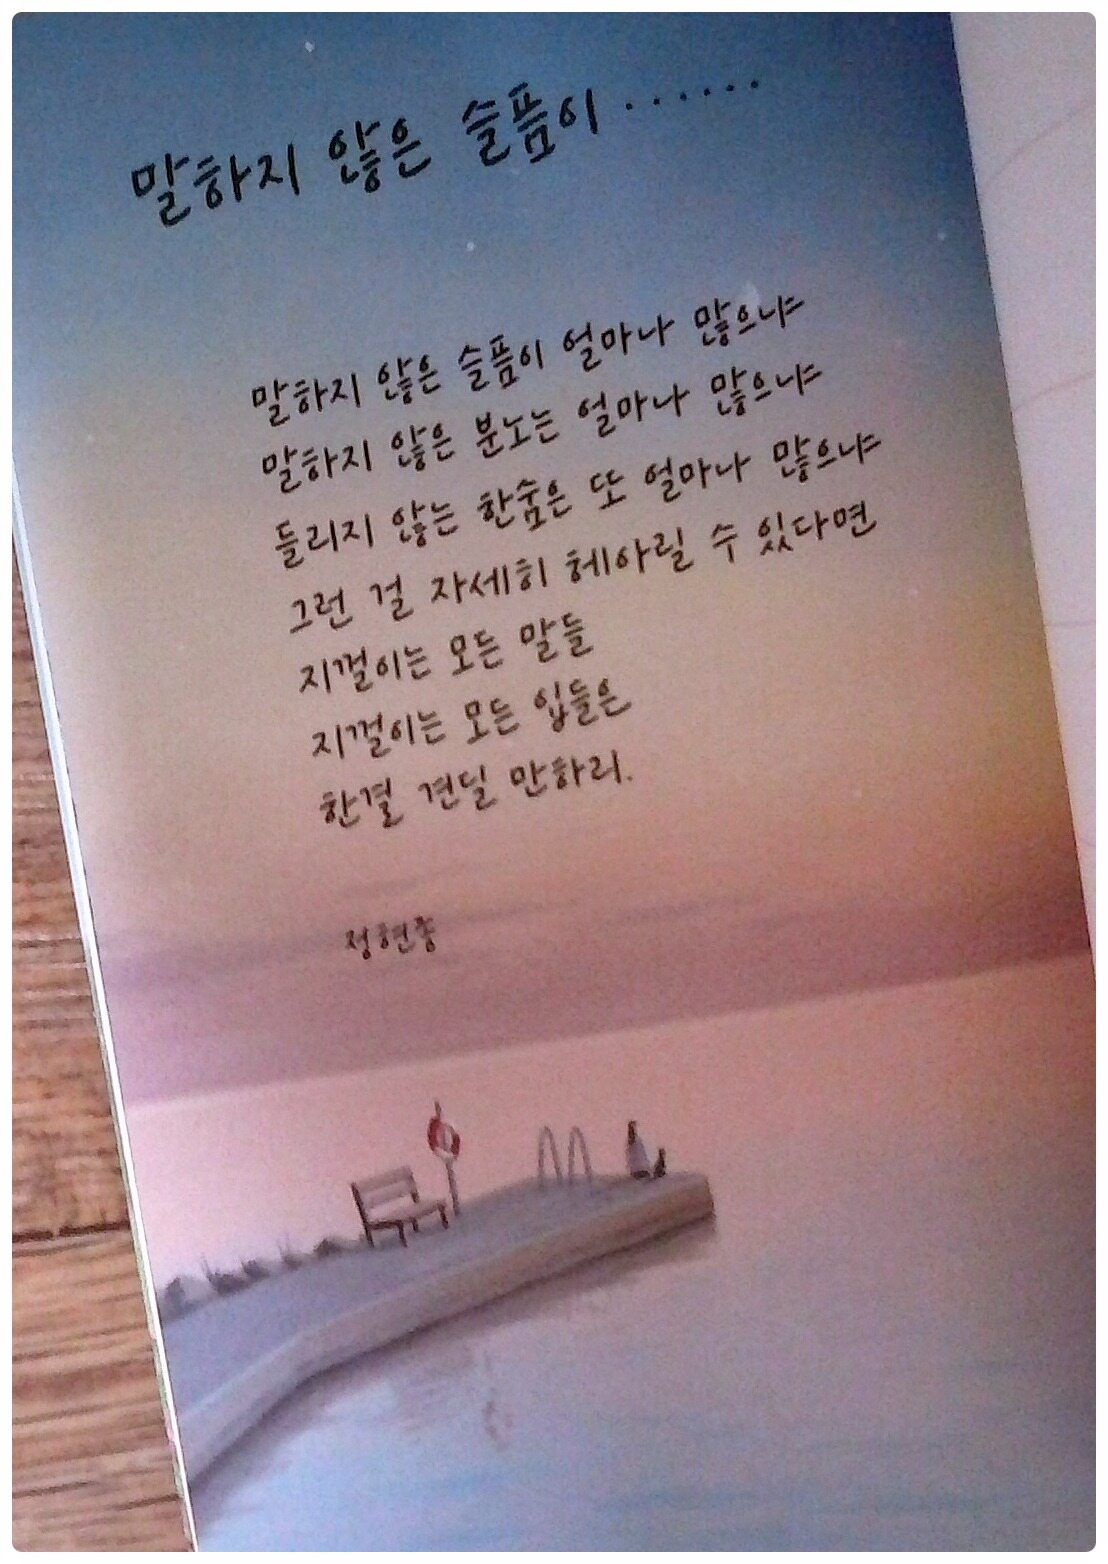 말하지 않은 슬픔이 ······
말하지 않은 슬픔이 얼마나 많으냐
말하지 않은 분노는 얼마나 많으냐
들리지 않는 한숨은 또 얼마나 많으냐
그런 걸 자세히 헤아릴 수 있다면
지껄이는 모든 말들
지껄이는 모든 입들은
한결 견딜 만하리.
정현종